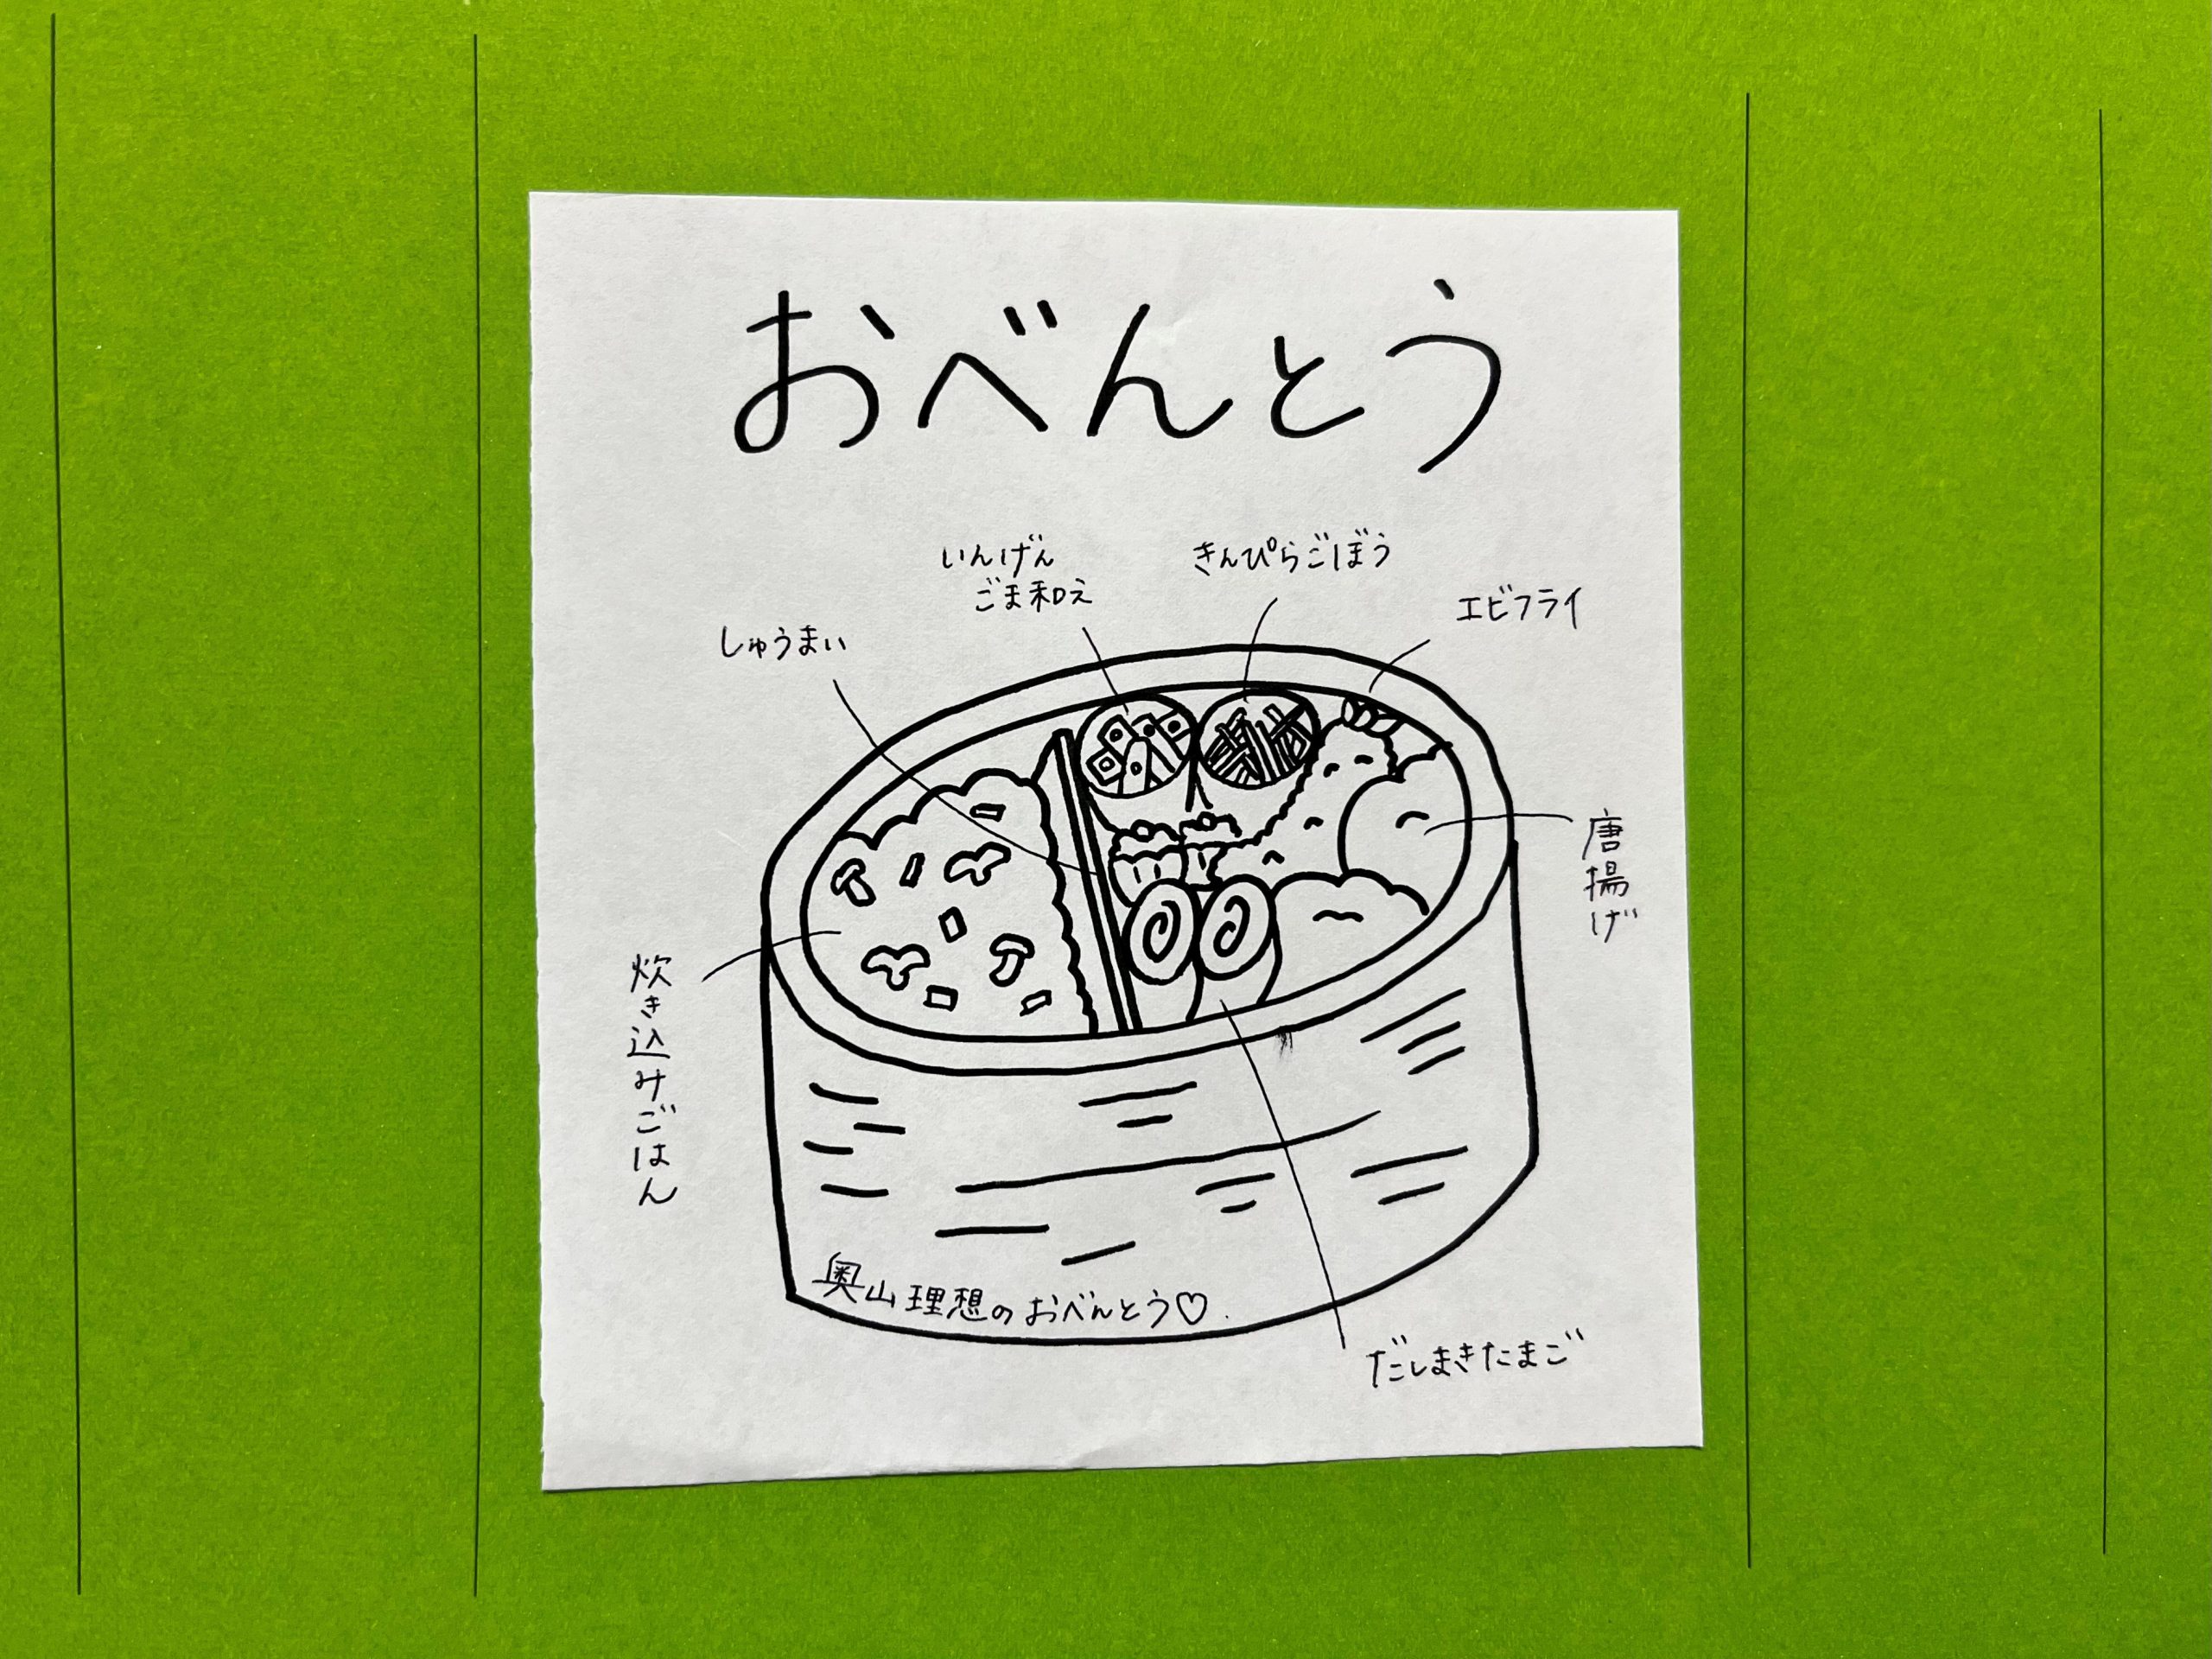 おべんとう
いんげん
ごま和え
きんぴらごぼう
エビフライ
しゅうまい
唐揚げ
炊き込みごはん
奥山理想のおべんとう♡.
だしまきたまご